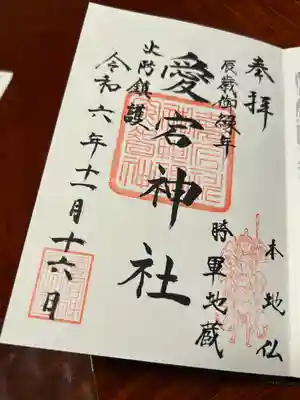 奉拝
本地仏
辰歳御縁年
勝軍地蔵
愛宕神社
火防鎮護
令和六年十一月十六日